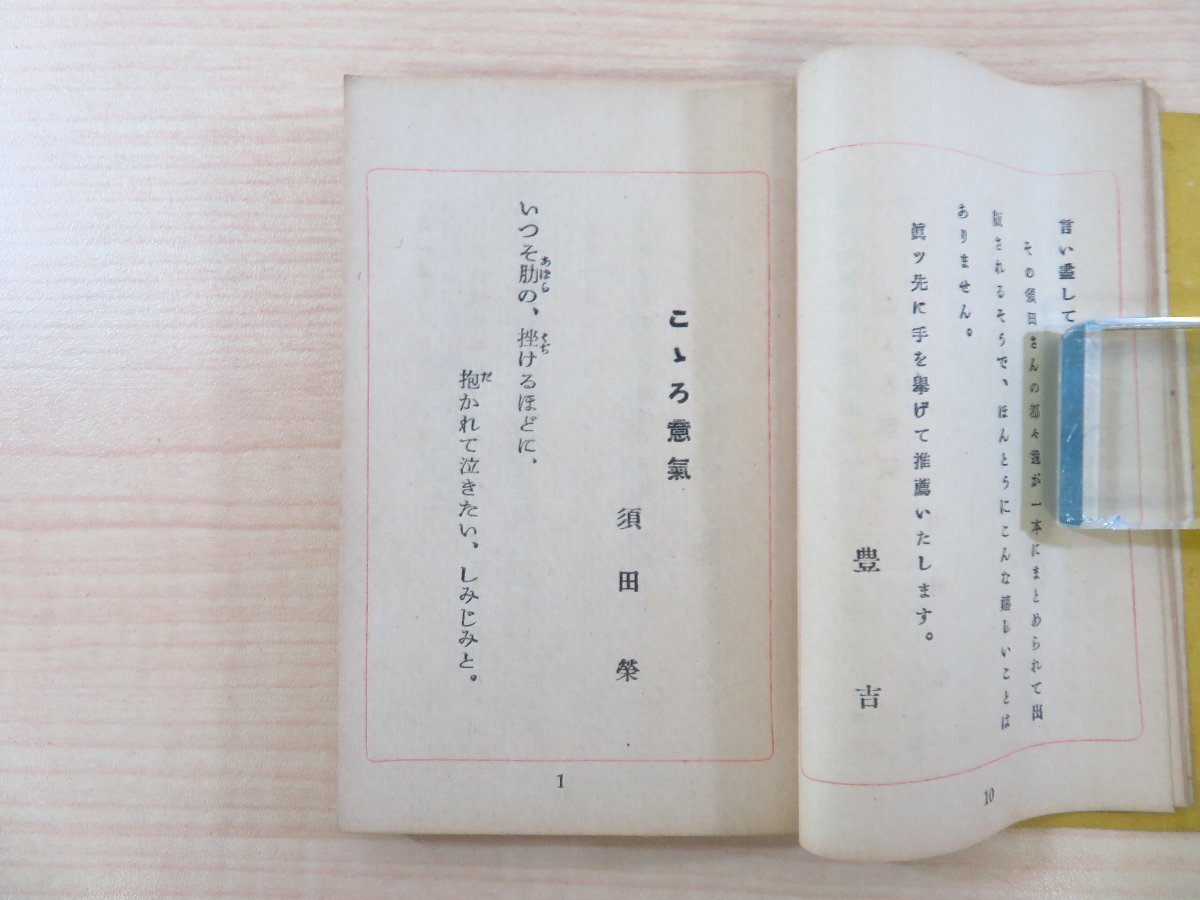 言い盡して
その須田さんの都々逸が一本にまとめられて出
版されるそうで、ほんとうにこんな嬉しいことは
ありません。
眞ッ先に手を擧げて推薦いたします。
豊吉
10
こゝろ意氣
須田榮
いつそ肋の、挫けるほどに、
あばら
くぢ
抱かれて泣きたい、しみじみと。
だ
1